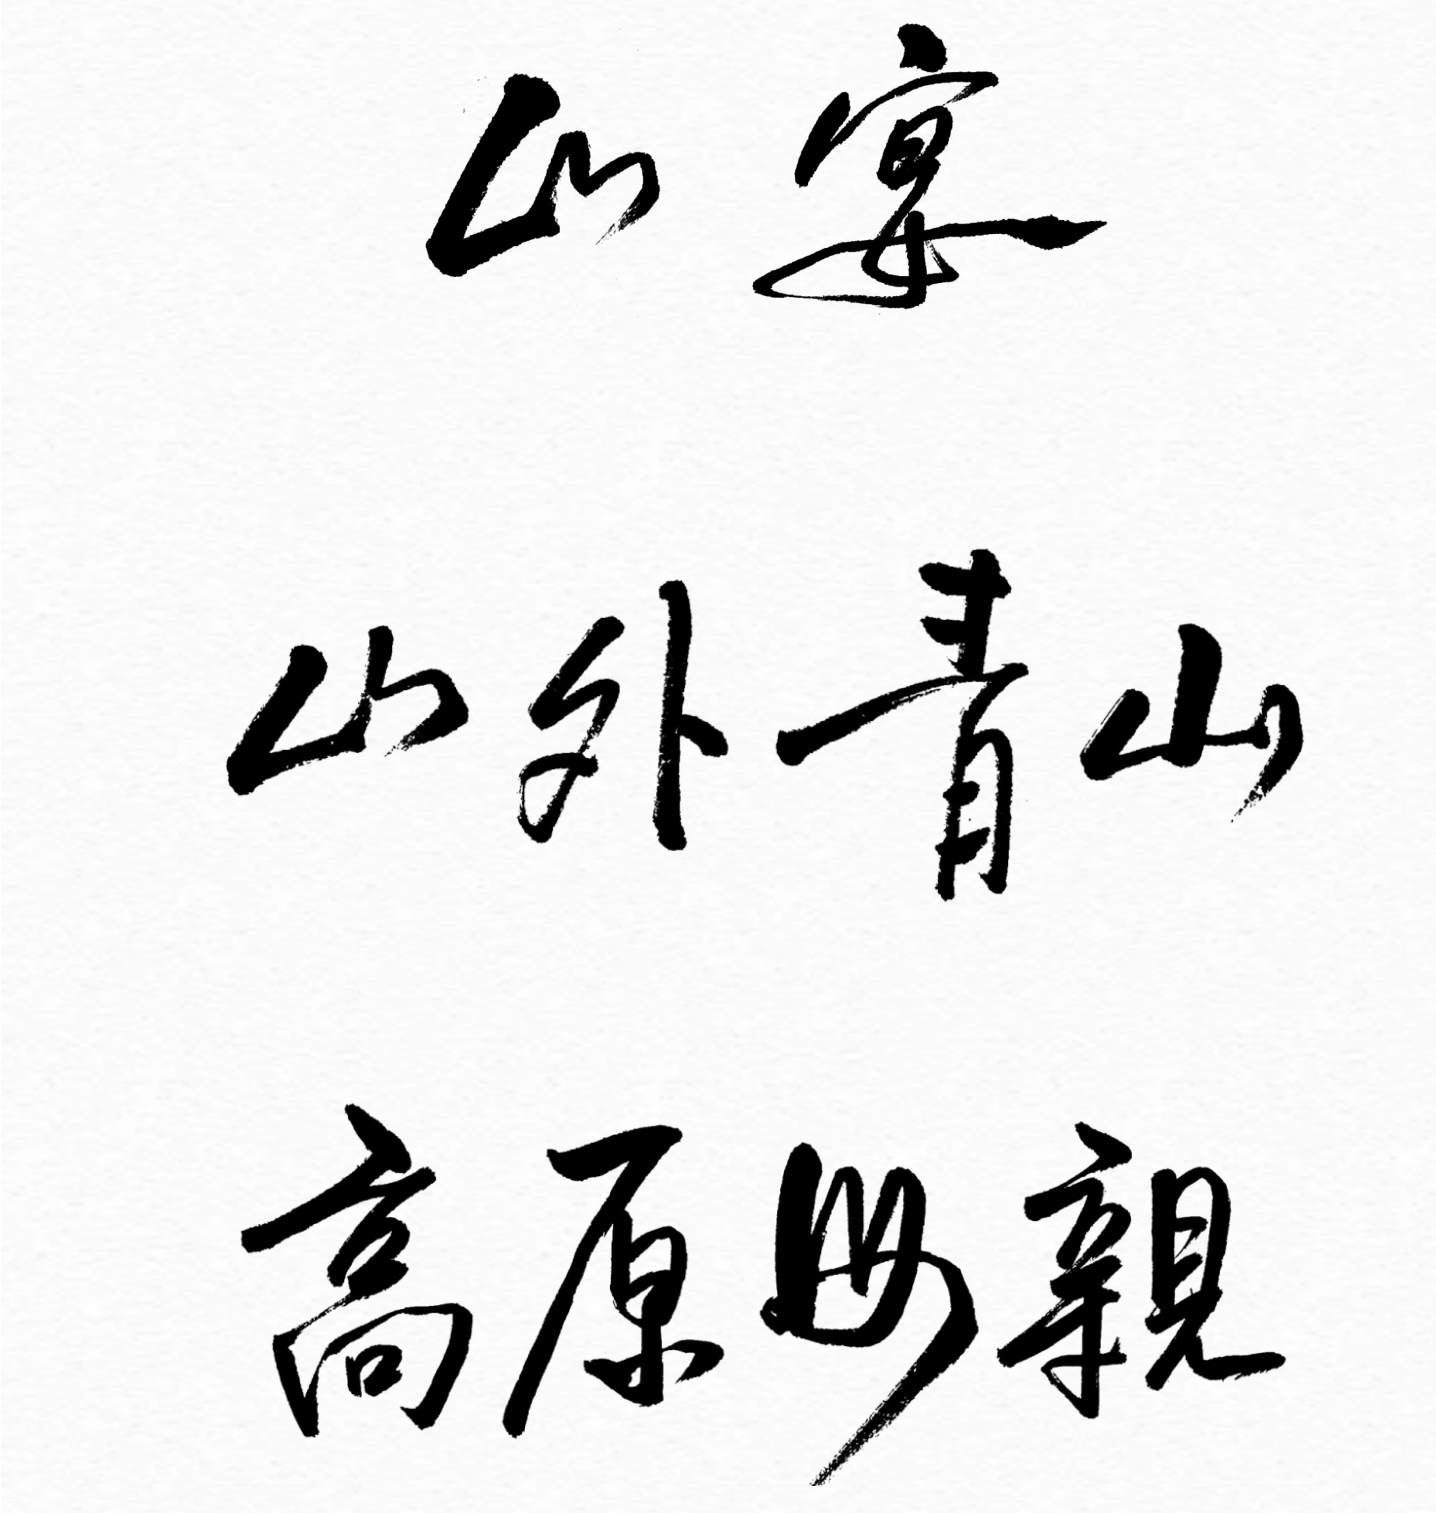 山宴
山外青山
高原母親